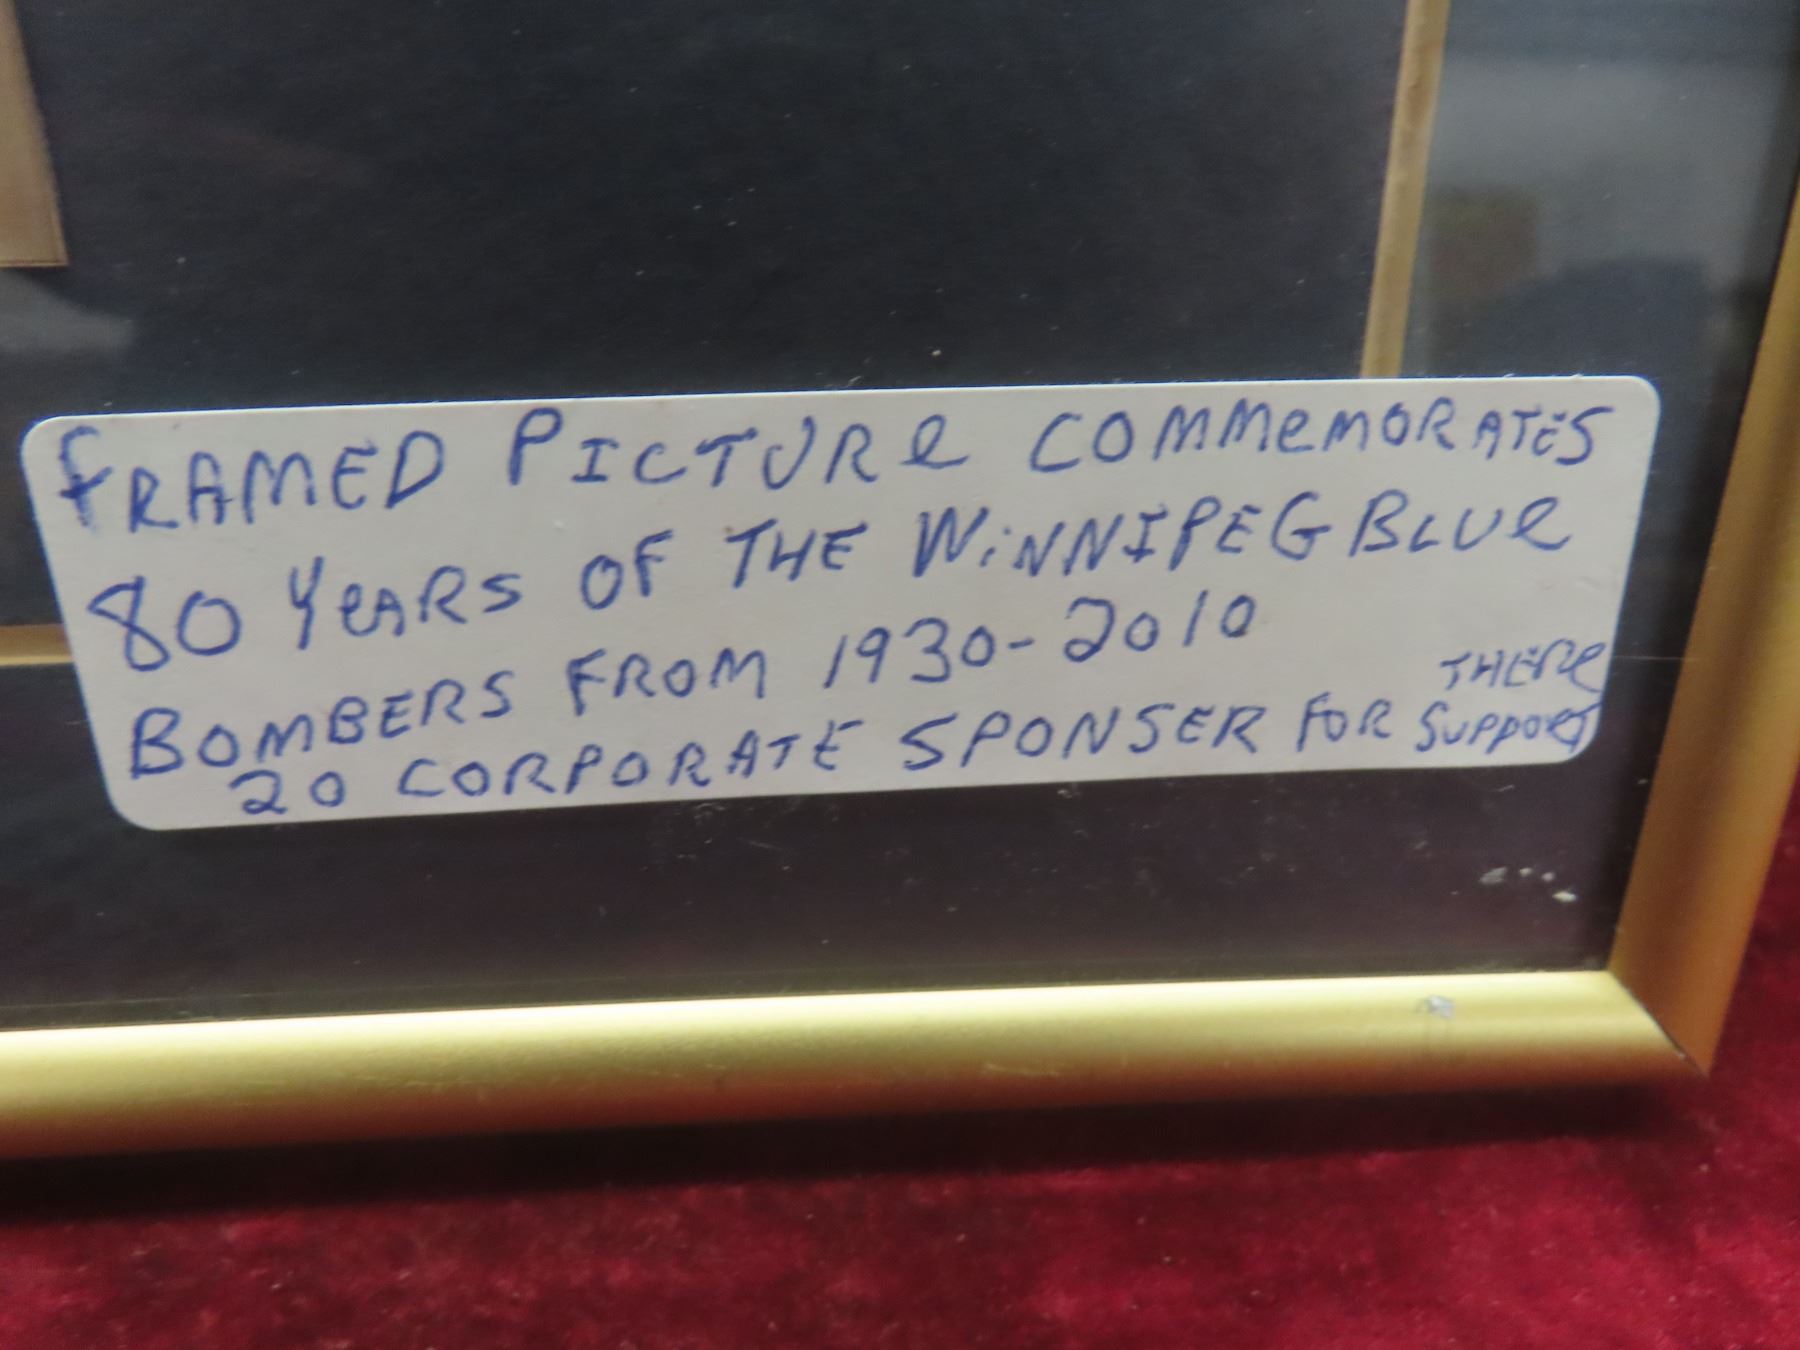 FRAMED PICTURe COMMeMORATES
80 YeARS OF THE WiNNIPEG BLUe
BOMBERS FROM 1930-2010
20 CORPORATE SPONSER FOR THERe SUPPORT